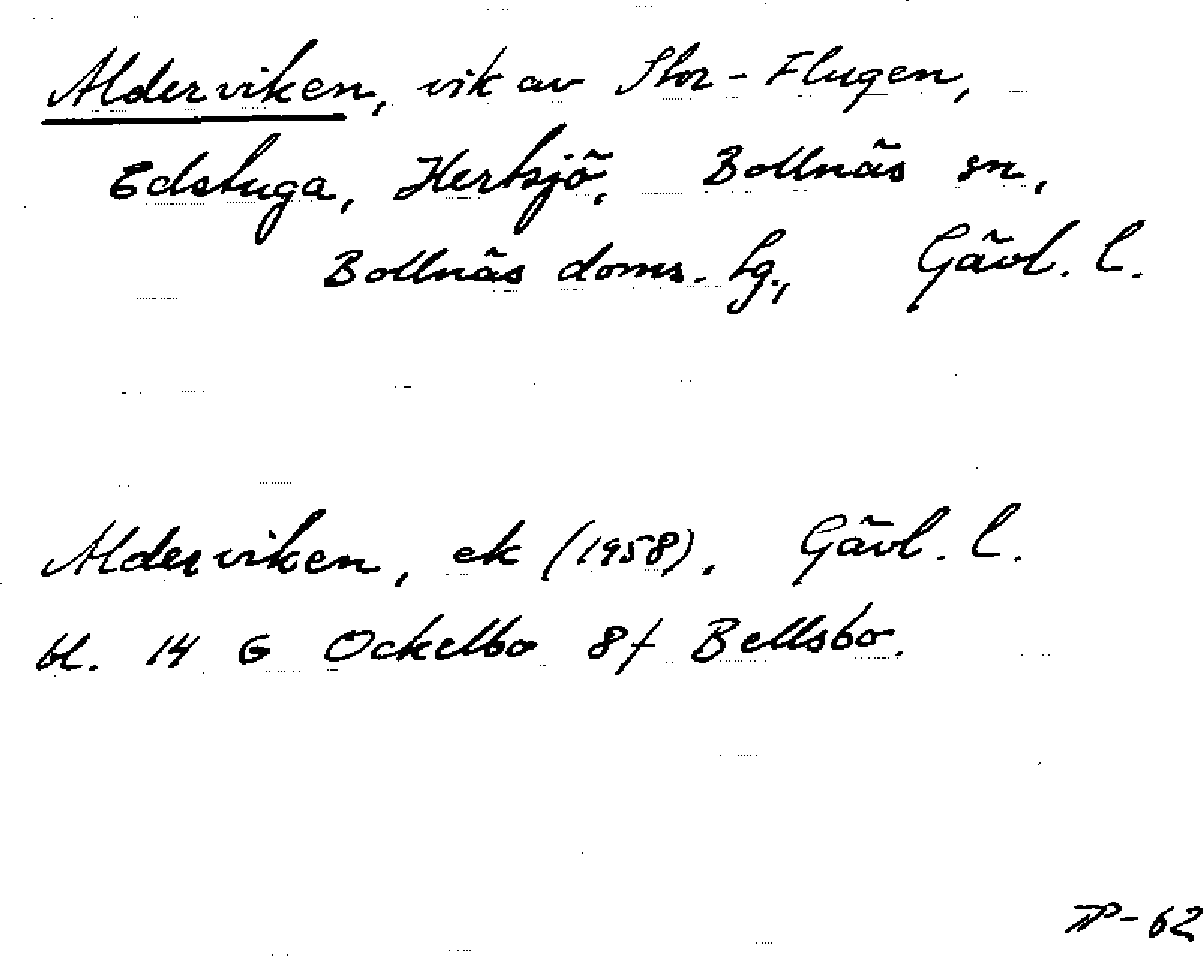 Alderviken, vik av Stor-Flugen,
Edstuga, Hertsjö, Bollnäs sn,
Bollnäs doms. tg., Gävl. l.
Alderviken, ek (1958). Gävl. l.
bl. 14 G Ockelbo 8f Bellsbo.
-62